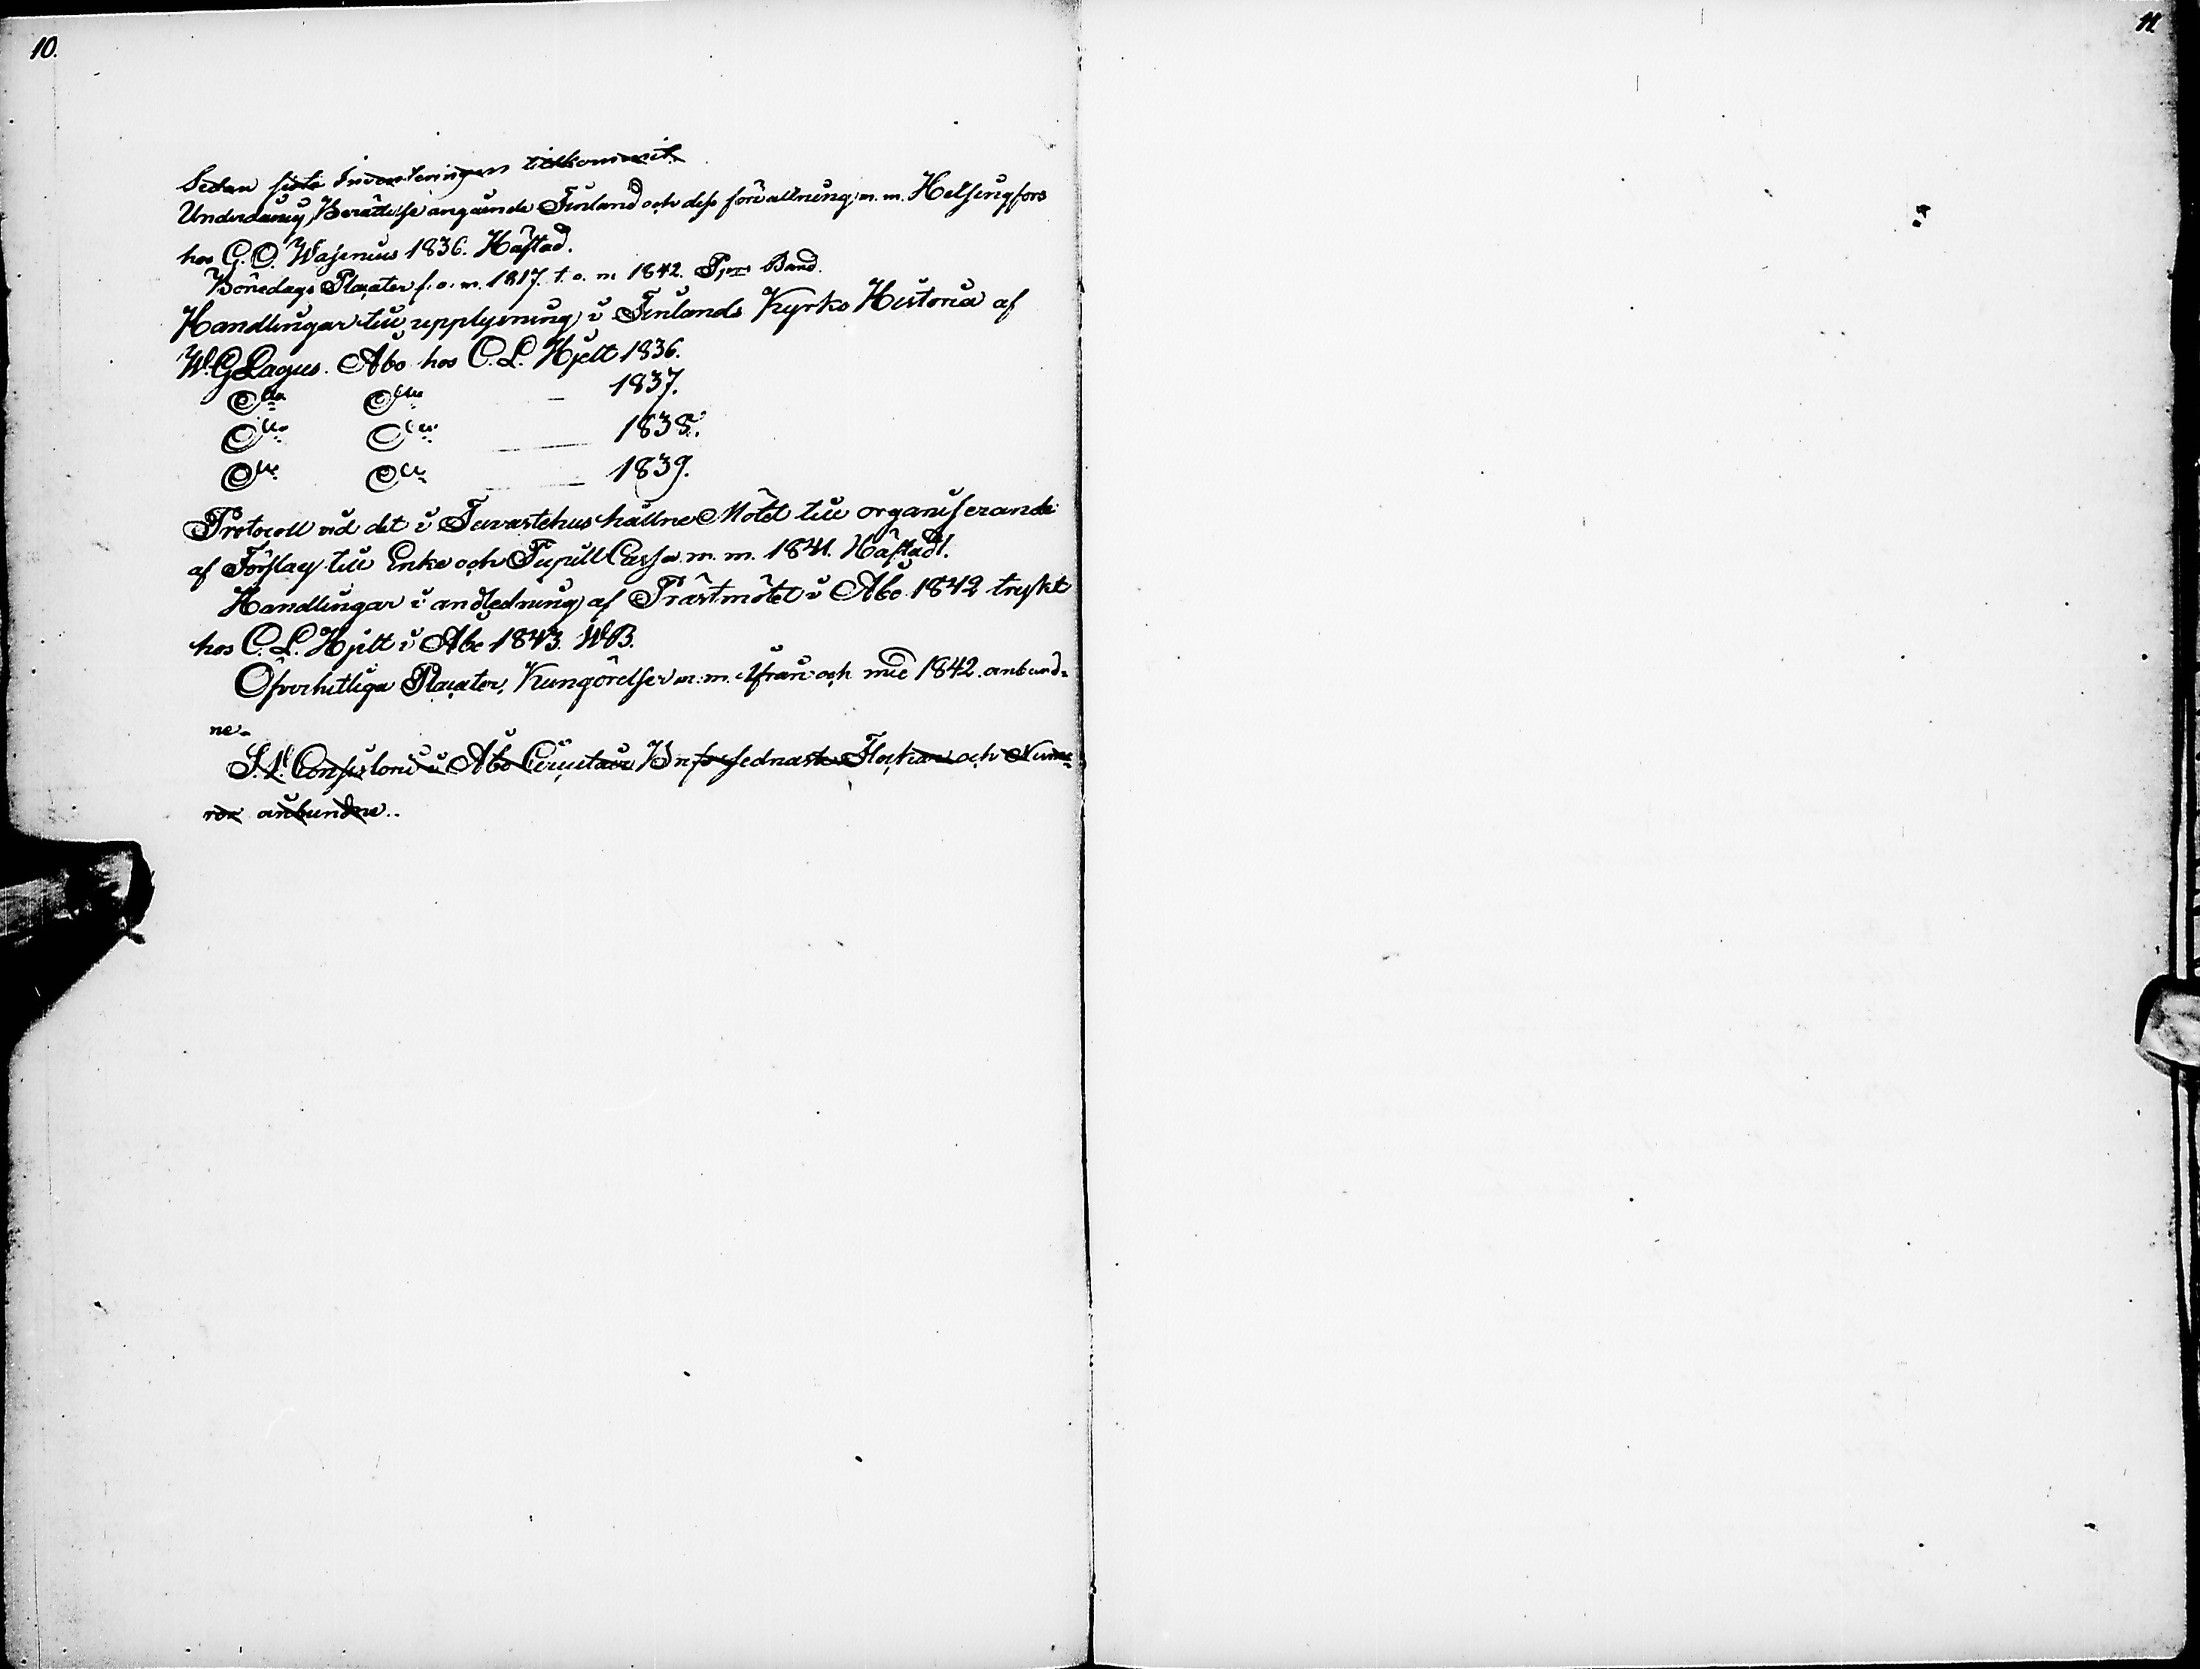 10.
11
Sedan sista Inventeringen tillkommit.
Underdånig Berättelse angående Finland och dess förvaltning m. m. Helsingfors
hos G. O. Wasenius 1836. Häftad.
Bönedags Placater f. o. m. 1817. t. o. m 1842. Band.
Handlingar till upplysning i Finlands Kyrko Historia af
W. G Lagus. Åbo hos C. L. Hjelt 1836.
D:o D:o — 1837.
D:o D:o — 1838.
D:o D:o — 1839.
Protocoll vid det i Tavastehus hållne Mötet till organiserande
af Förslag till Enke och Pupill Cassa m. m. 1841. Häftadt.
Handlingar i anledning af Prästmötet i Åbo 1842 tryckt
hos C. L. Hjelt i Åbo 1843.
Öfverhetliga Placater, Kungörelser m. m. ifrån och med 1842. inbund-
ne.
Consistorii i Åbo Circulair Bref sednaste Flockan och Num-
rer inbundne..